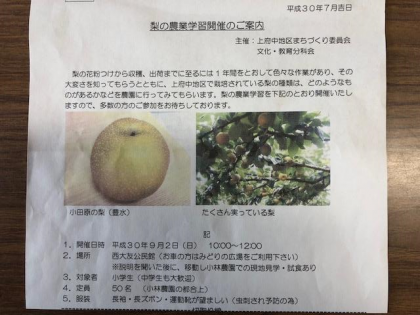 平成30年7月吉日
梨の農業学習開催のご案内
主催：上府中地区まちづくり委員会
文化・教育分科会
梨の花粉つけから収穫、出荷までに至るには1年間をとおして色々な作業があり、その
大変さを知ってもらうとともに、上府中地区で栽培されている梨の種類は、どのようなも
のがあるかなどを農園に行ってみてもらいます。梨の農業学習を下記のとおり開催いたし
ますので、多数の方のご参加をお待ちしております。
小田原の梨（豊水）
たくさん実っている梨
記
1．開催日時　平成30年9月2日（日）　10:00～12:00
2．場所　西大友公民館（お車の方はみどりの広場をご利用下さい）
※説明を聞いた後に、移動し小林農園での現地見学・試食あり
3．対象者　小学生（中学生も大歓迎）
4．定員　50名　（小林農園の都合上）
5．服装　長袖・長ズボン・運動靴が望ましい（虫刺され予防の為）